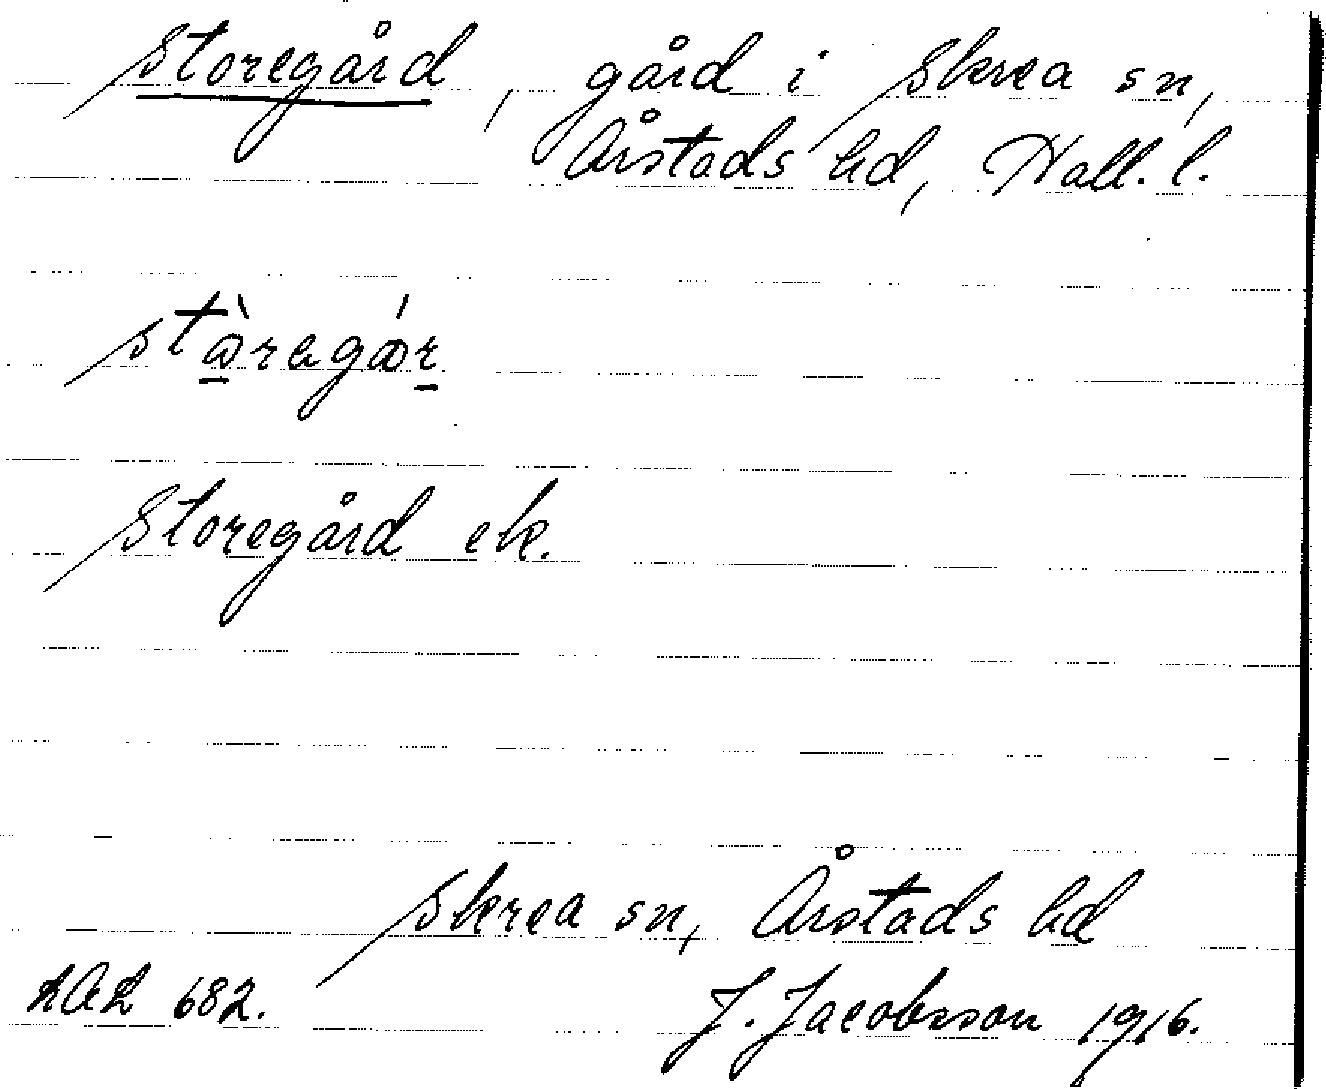 Storegård, gård i Skrea sn,
Årstads hd, Hall. l.
Storegård ek.
Skrea sn, Årstads hd
LAL 682. J. Jacobsson 1916.